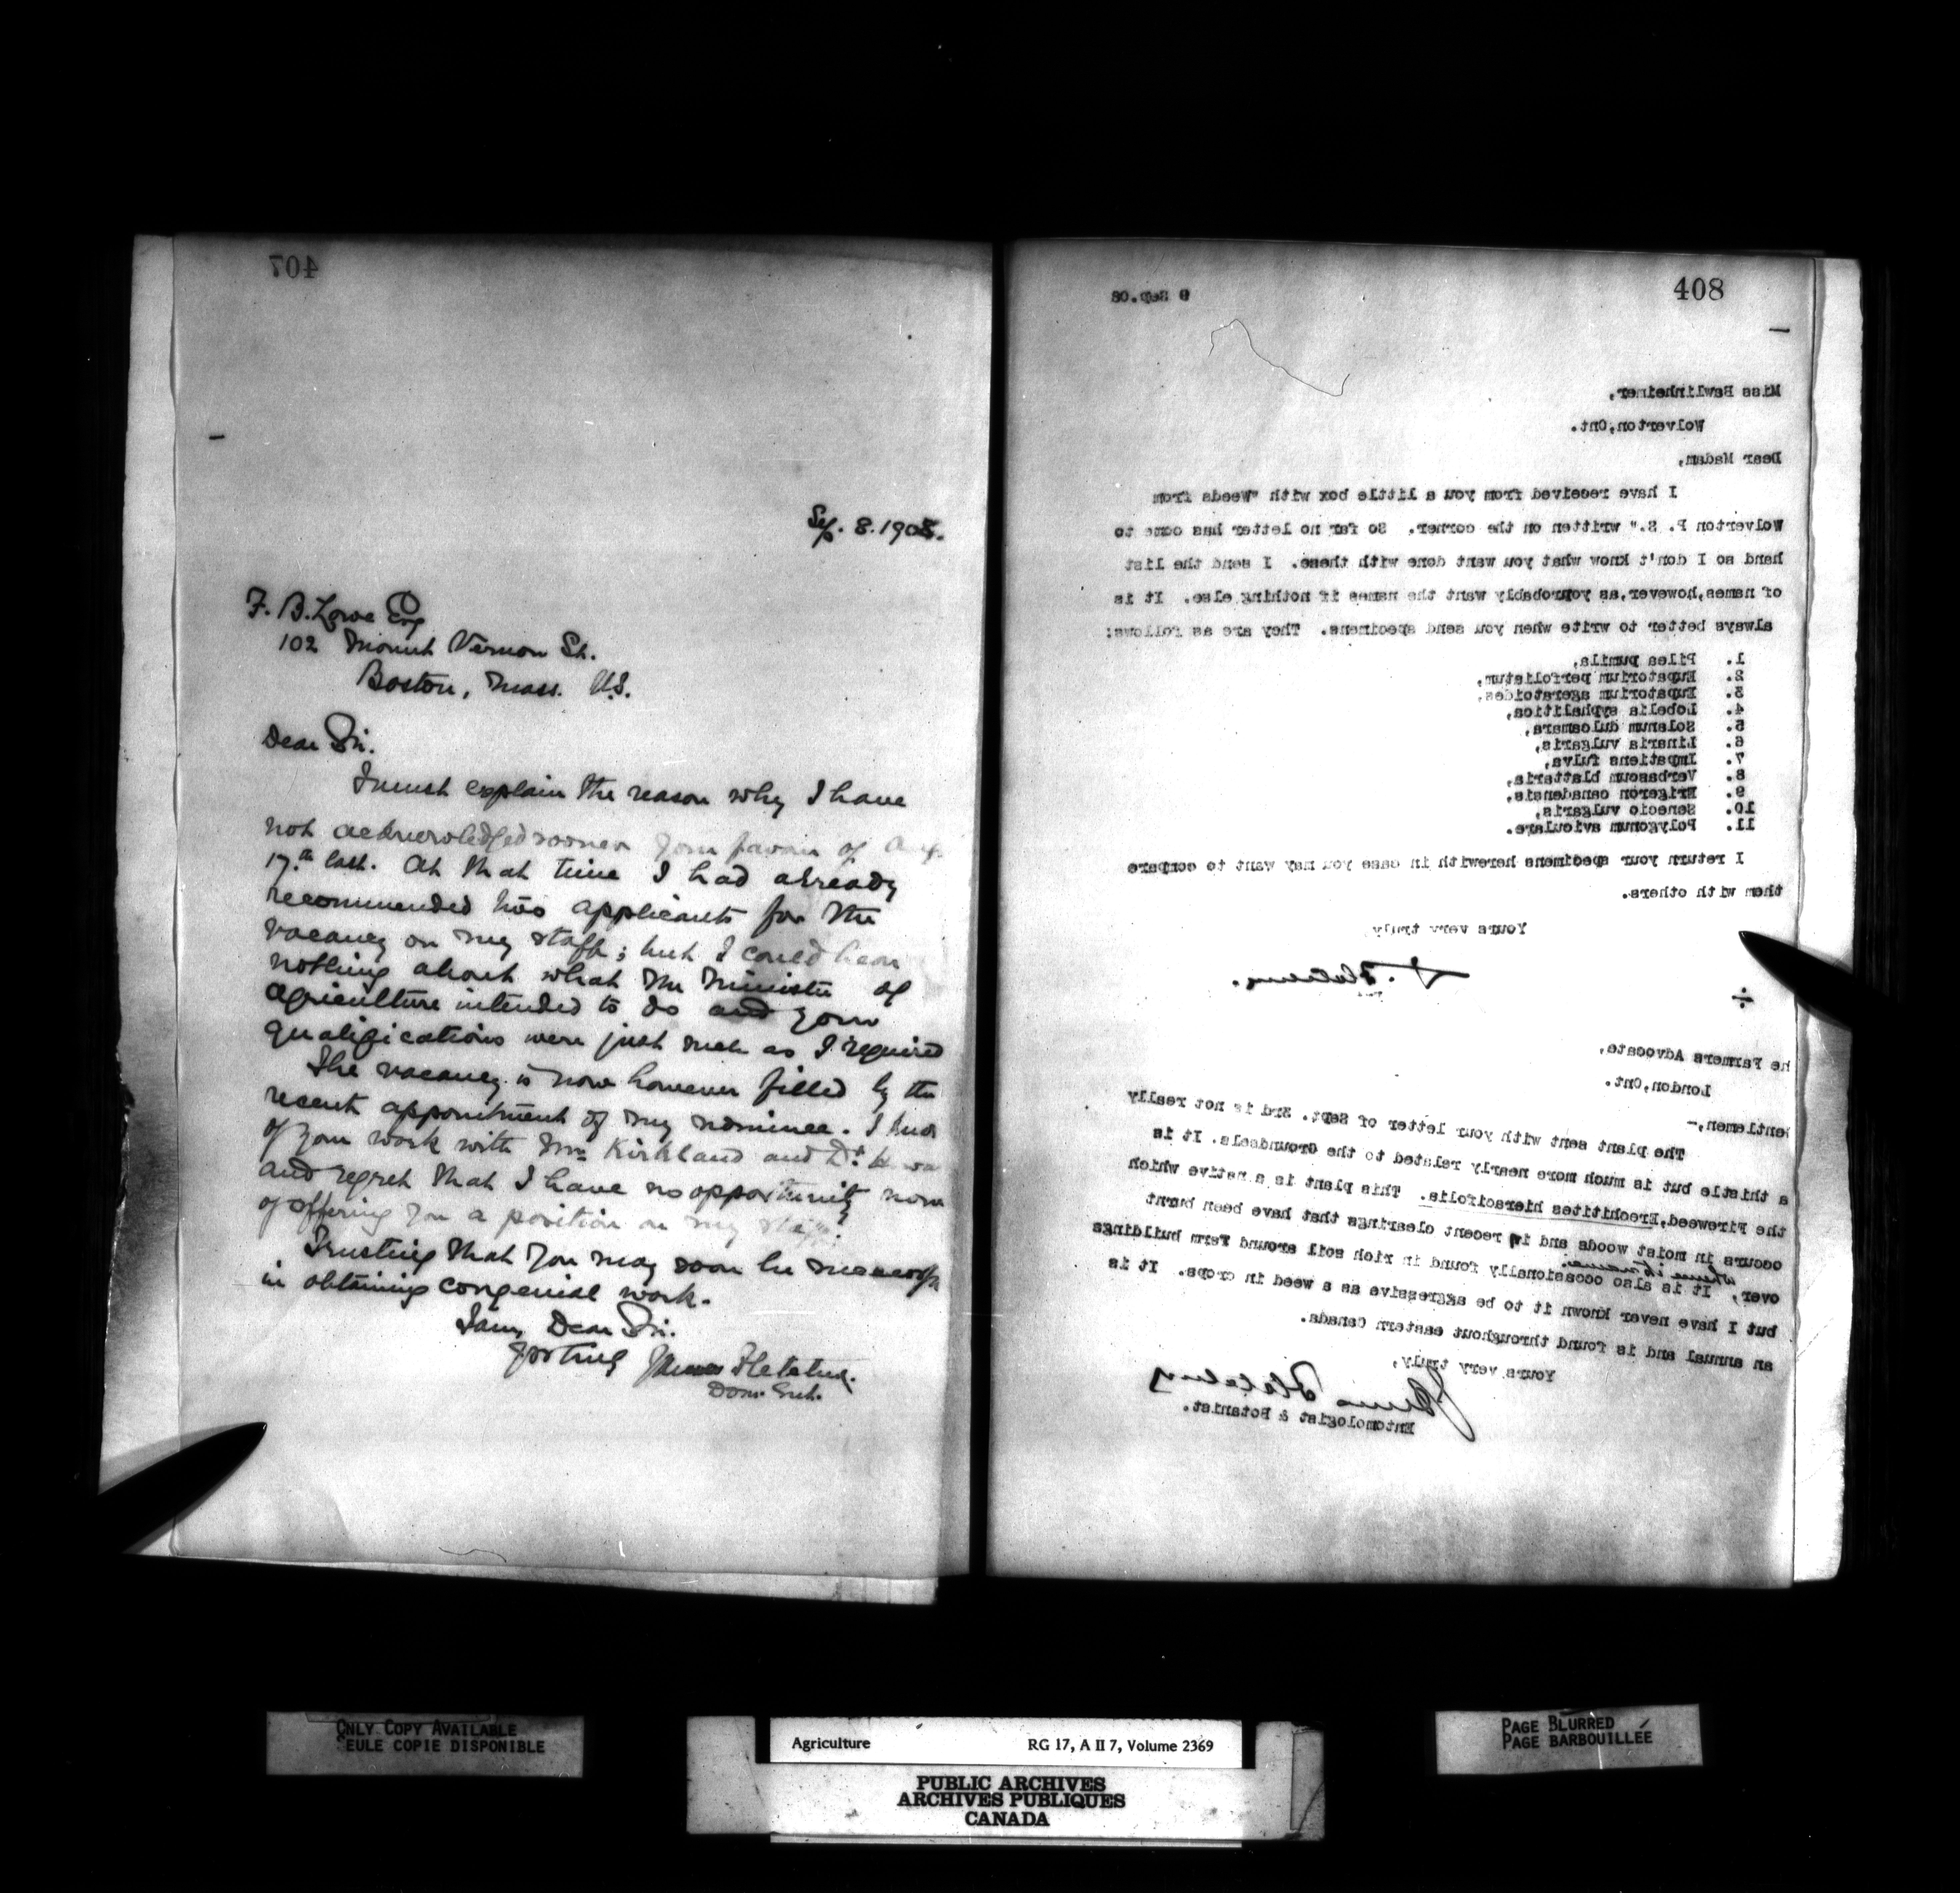 407
Sep. 8. 1908.
F. B. Lowe Esq
102 Mount Vernon St.
Boston, Mass. U.S.
Dear Sir.
I must explain the reason why I have
not acknowledged sooner your favour of Aug.
17th last. At that time I had already
recommended two applicants for the
vacancy on my staff; but I could hear
nothing about what the Minister of
Agriculture intended to do and your
qualifications were just such as I required
The vacancy is now however filled by the
recent appointment of my nominee. I
of your work with Mr Kirkland and Dr.
and regret that I have no opportunity now
of offering you a position on my staff.
Trusting that you may soon be successful
in obtaining congenial work.
I am, Dear Sir.
Yrs truly James Fletcher.
Dom. Ent.
408
9 Sep.08
Miss Bawlinheimer,
Wolverton,Ont.
Dear Madam,
I have received from you a little box with "Weeds from
Wolverton P. S." written on the corner. So far no letter has come to
hand so I don't know what you want done with these. I send the list
of names,however,as yoprobably want the names if nothing else. It is
always better to write when you send specimens. They are as follows:
1. Pilea pumila,
2. Eupatorium perfoliatum,
3. Eupatorium ageratoides,
4. Lobelia syphalitica,
5. Solanum dulcamara,
6. Linaria vulgaris,
7. Impatiens fulva,
8. Verbascum blattaria,
9. Erigeron canadensis,
10. Senecio vulgaris,
11. Polygonum aviculare.
I return your specimens herewith in case you may want to compare
them with others.
Yours very truly
J. Fletcher.
he Farmers Advocate,
London,Ont.
entlemen,-
The plant sent with your letter of Sept. 3rd is not really
a thistle but is much more nearly related to the Groundsels. It is
the Fireweed,Erechtites hieracifolia. This plant is a native which
occurs in moist woods and in recent clearings that have been burnt
over, It is also occasionally found in rich soil around farm buildings
but I have never known it to be aggressive as a weed in crops. It is
an annual and is found throughout eastern Canada.
Yours very truly,
James Fletcher
Entomologist & Botanist.
ONLY COPY AVAILABLE
EULE COPIE DISPONIBLE
Agriculture RG 17, A II 7, Volume 2369
PUBLIC ARCHIVES
ARCHIVES PUBLIQUES
CANADA
PAGE BLURRED
PAGE BARBOUILLÉE